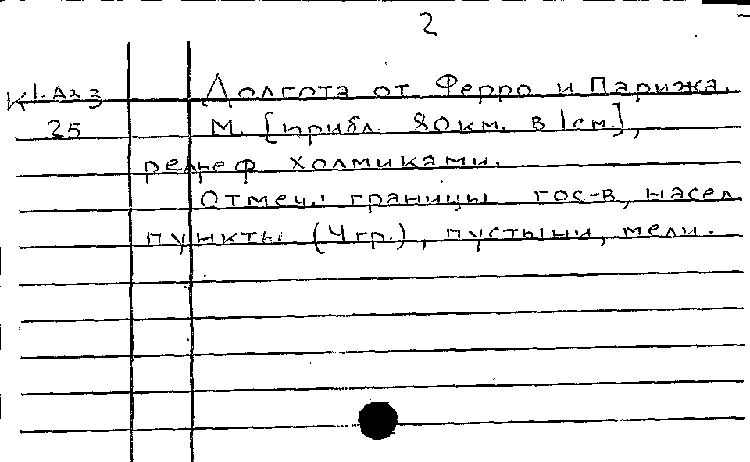 2
К 1-Аз 3 Долгота от Ферро и Парижа.
25 М. [прибл. 80 км. в 1 см.],
рельеф холмиками.
Отмеч. границы гос-в, насел.
пункты (4 гр.), пустыни, мели.